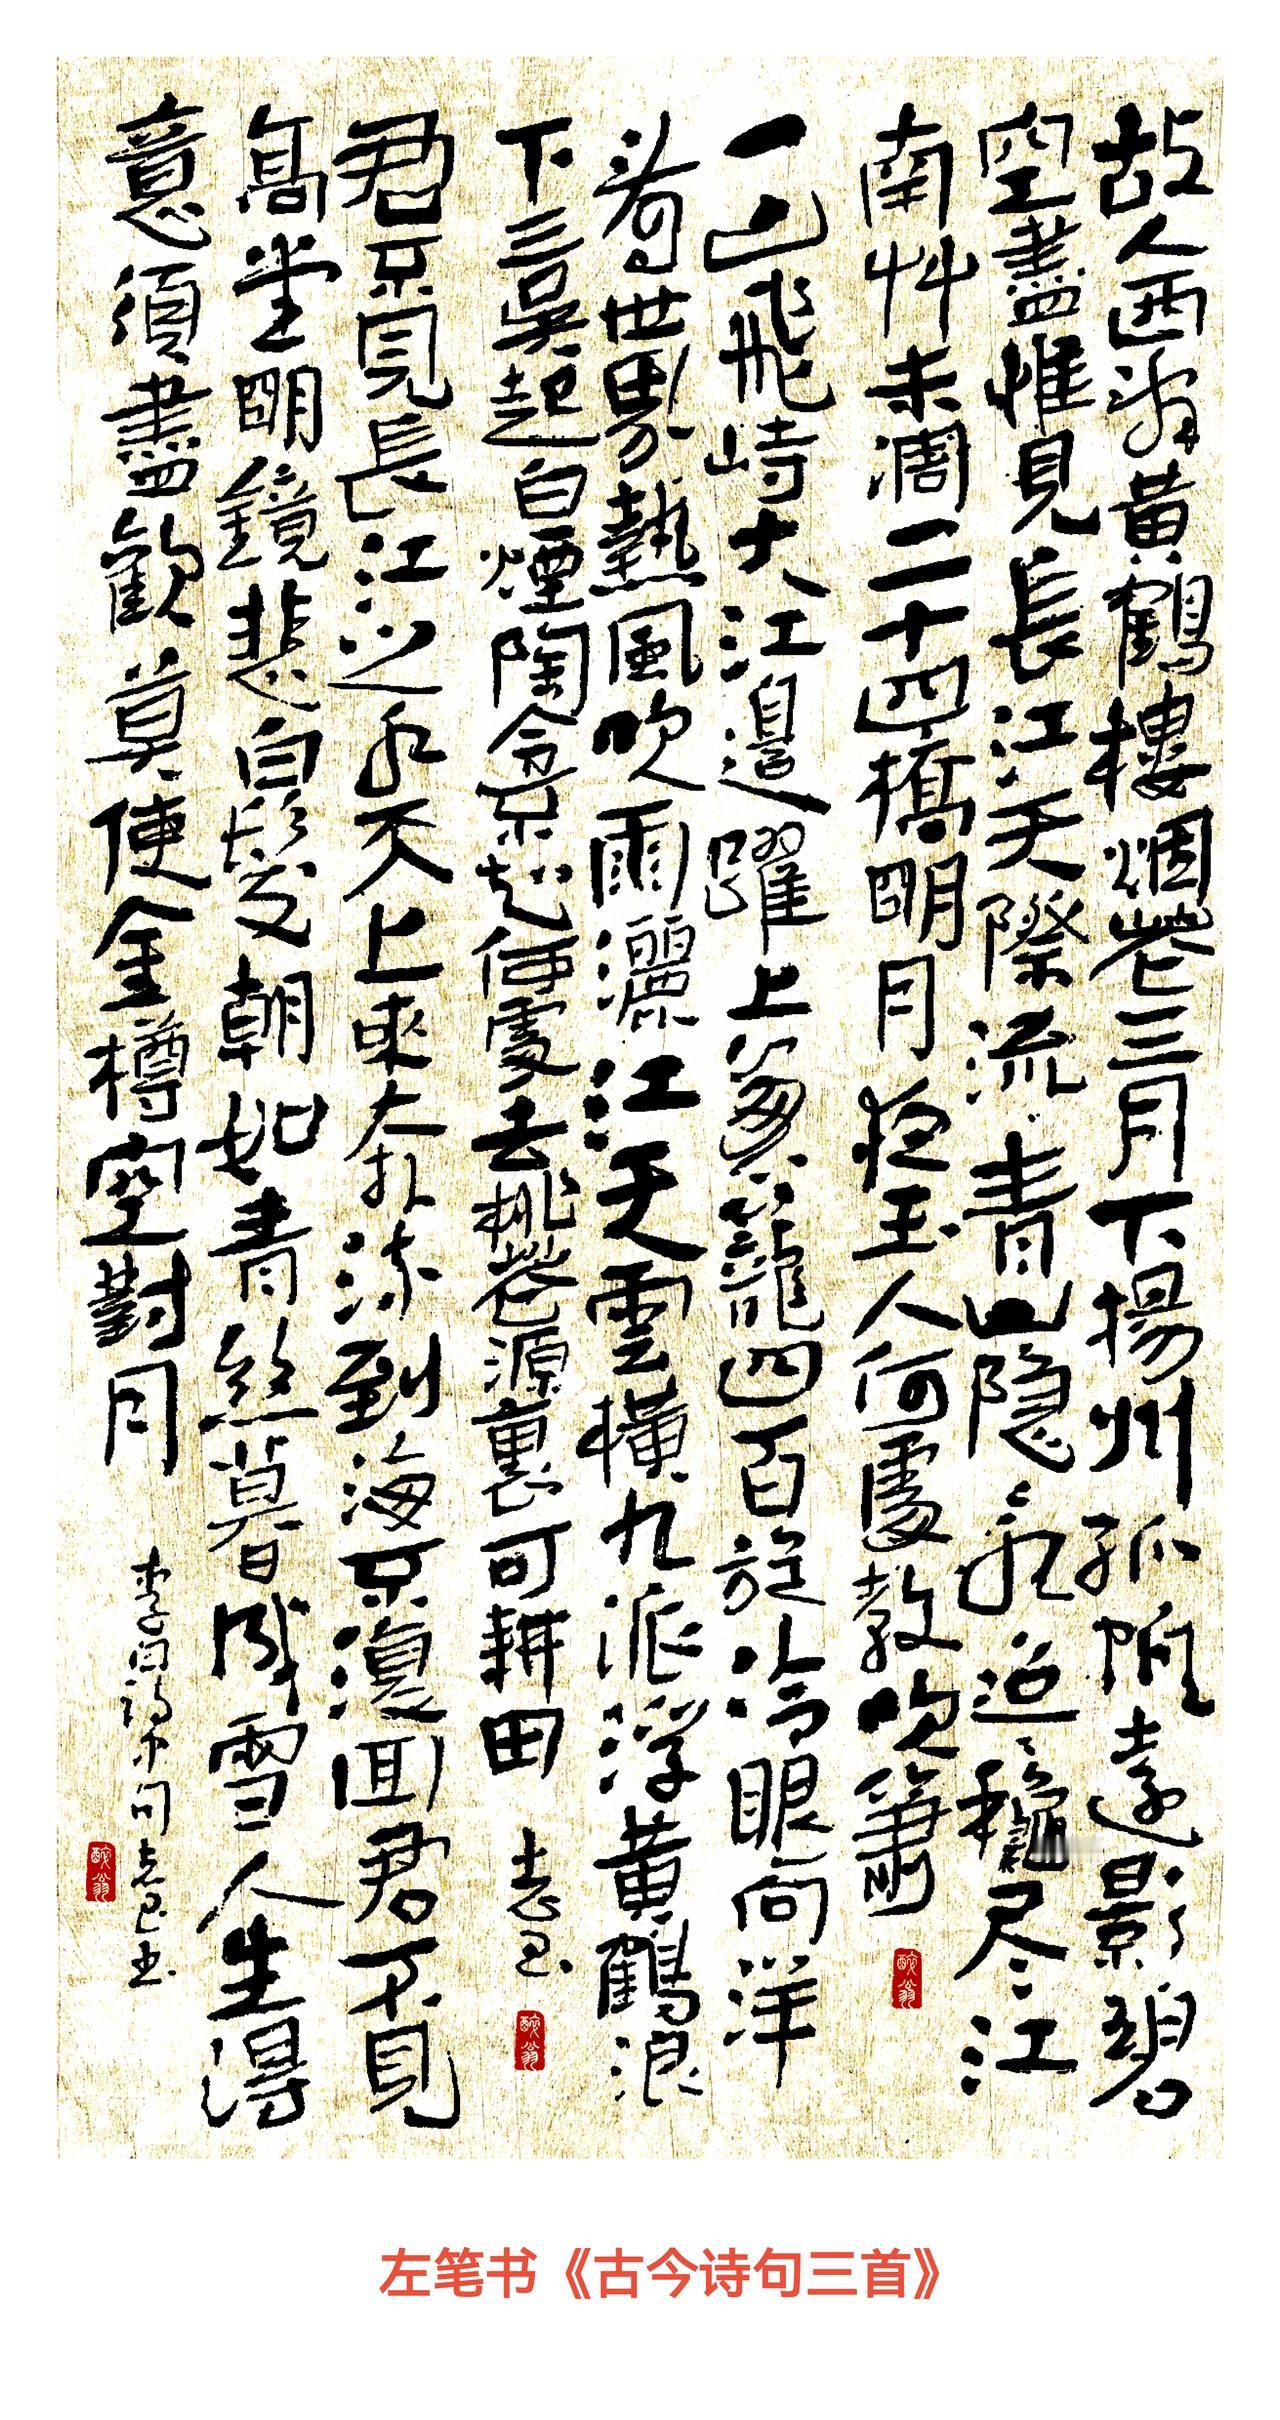 故人西辭黃鶴樓烟花三月下揚州孤帆遠影碧
空盡惟見長江天際流青山隐〻水迢〻穐尽江
南艸未凋二十四橋明月夜玉人何處教吹簫
醉翁
一山飛峙大江邊躍上蔥籠四百旋冷眼向洋
看世界熱風吹雨灑江天雲橫九派浮黃鶴浪
下三吳起白煙陶令不知何處去桃花源裏可耕田
醉翁
君不見長江之水天上來奔流到海不復回君不見
高堂明鏡悲白髮朝如青絲暮成雪人生得
意須盡歡莫使金樽空對月
李白詩句
醉翁
左笔书《古今诗句三首》